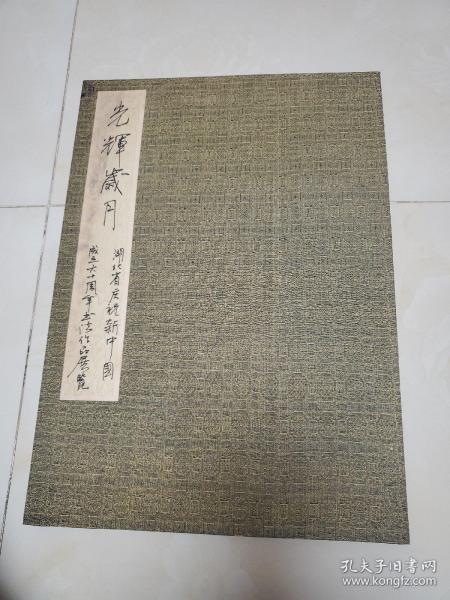 光輝歲月
湖北省庆祝新中國
成立六十周年书法作品展覽
孔夫子旧书网
www.kongfz.com